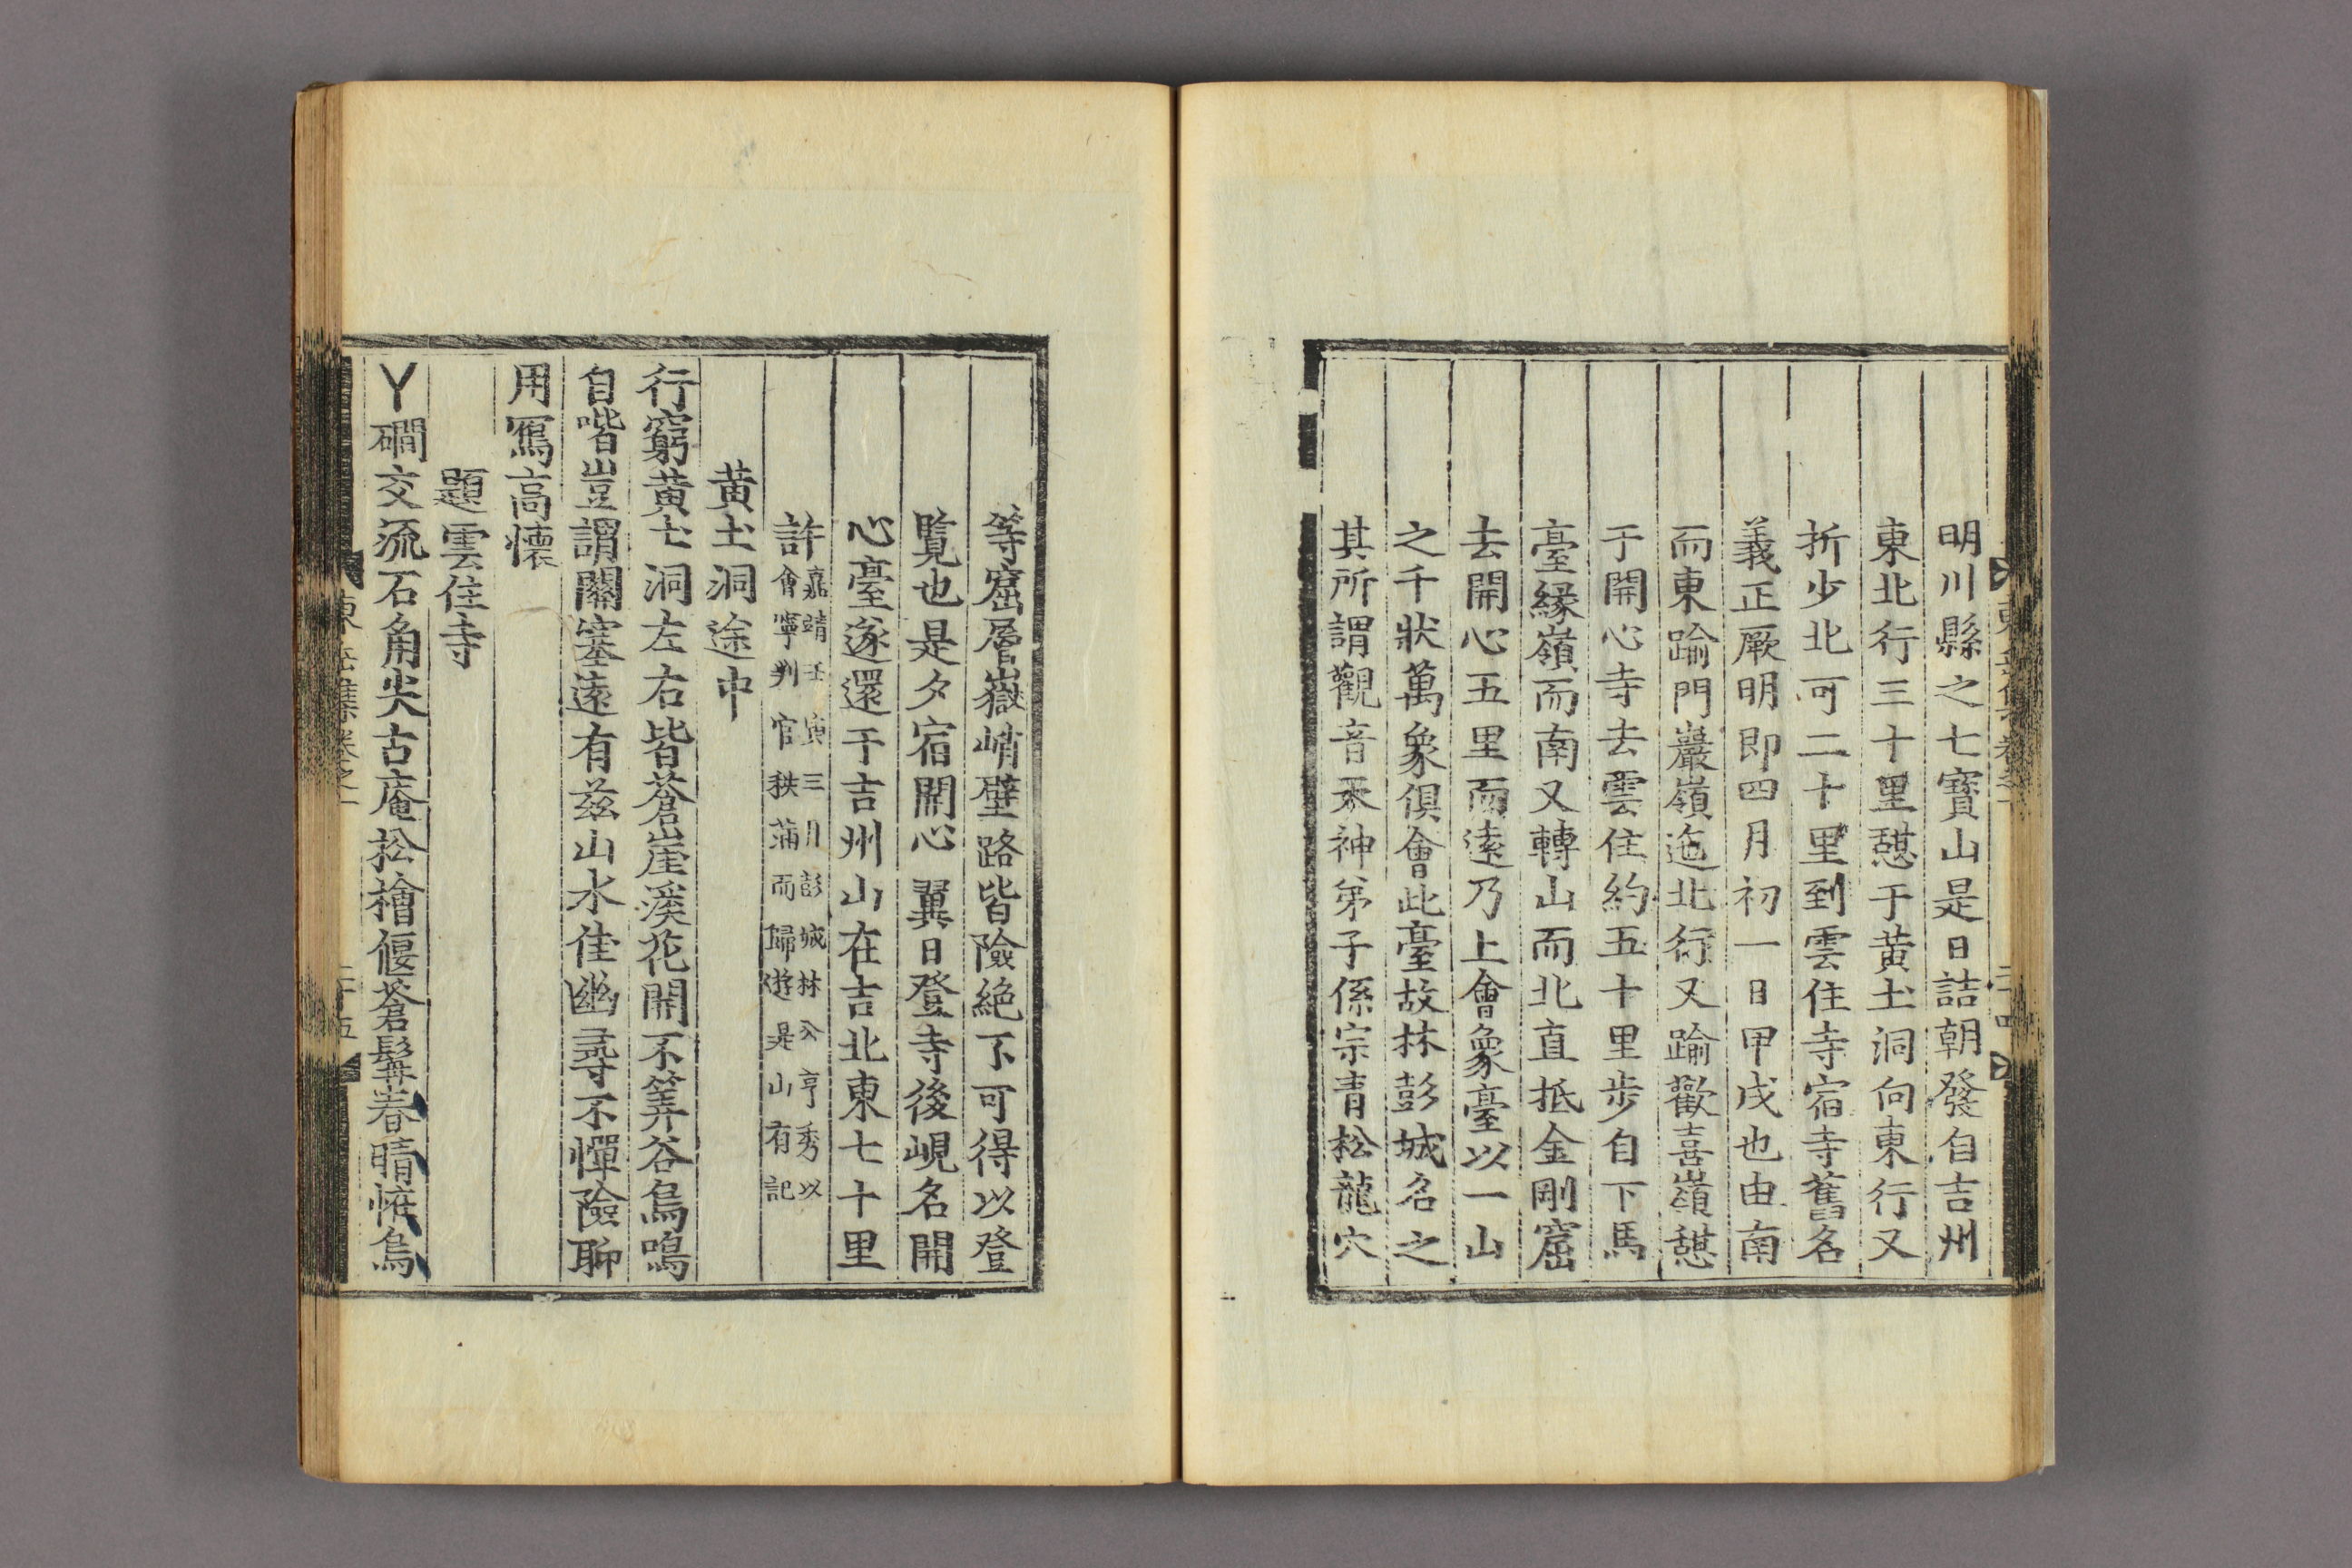 明川縣之七寶山是日詰朝發自吉州
東北行三十里憇于黃土洞向東行又
折少北可二十里到雲住寺宿寺舊名
義正厥明即四月初一日甲戌也由南
而東踰門巖嶺迤北行又踰歡喜嶺憇
于開心寺去雲住約五十里步自下馬
臺緣嶺而南又轉山而北直抵金剛窟
去開心五里而遠乃上會象臺以一山
之千狀萬象俱會此臺故林彭城名之
其所謂觀音釆神弟子係宗青松龍穴
等窟層嶽峭壁路皆險絶不可得以登
覽也是夕宿開心翼日登寺後峴名開
心臺遂還于吉州山在吉北東七十里
許嘉靖壬寅三月彭城林公亨秀以
會寧判官秩滿而歸遊是山有記
黃土洞途中
行窮黃土洞左右皆蒼崖溪花開不筭谷鳥鳴
自喈豈謂關塞遠有茲山水佳幽尋不憚險聊
用寫高懷
題雲住寺
丫磵交流石角尖古庵松檜偃蒼髥春晴恠鳥